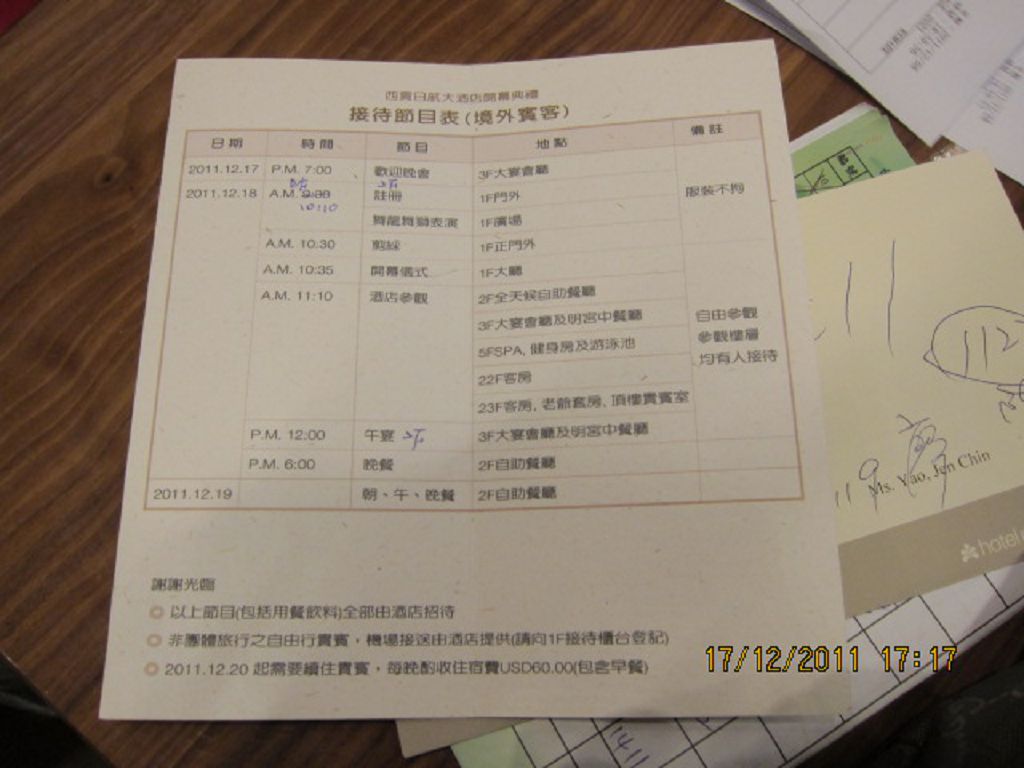 西貢日航大酒店開幕典禮
接待節目表(境外賓客)
日期 時間 節目 地點 備註
2011.12.17 P.M. 7:00 歡迎晚會 3F大宴會廳
2011.12.18 A.M. 9:30 註冊 1F門外 服裝不拘
10:10
舞龍舞獅表演 1F廣場
A.M. 10:30 剪綵 1F正門外
A.M. 10:35 開幕儀式 1F大廳
A.M. 11:10 酒店參觀 2F全天候自助餐廳
3F大宴會廳及明宮中餐廳 自由參觀
5FSPA, 健身房及游泳池 參觀樓層
22F客房 均有人接待
23F客房, 老爺套房, 頂樓貴賓室
P.M. 12:00 午宴 3F大宴會廳及明宮中餐廳
P.M. 6:00 晚餐 2F自助餐廳
2011.12.19 朝、午、晚餐 2F自助餐廳
謝謝光臨
以上節目(包括用餐飲料)全部由酒店招待
非團體旅行之自由行貴賓，機場接送由酒店提供(請向1F接待櫃台登記)
2011.12.20 起需要續住貴賓，每晚酌收住宿費USD60.00(包含早餐)
11
112
119
Ms. Yao, Jen Chin
hotel
1411
17/12/2011 17:17